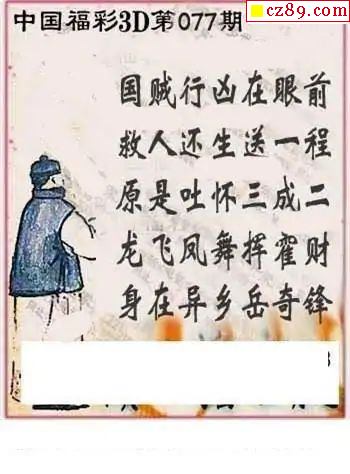 cz89.com
中国福彩3D第077期
国贼行凶在眼前
救人还生送一程
原是吐怀三成二
龙飞凤舞挥霍财
身在异乡岳奇锋